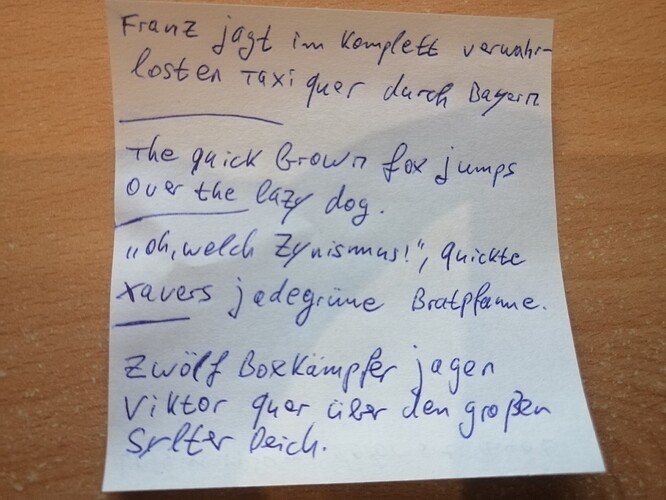 Franz jagt im komplett verwahr-
losten Taxi quer durch Bayern
The quick brown fox jumps
over the lazy dog.
„Oh, welch Zynismus!“, quickte
Xavers jadegrüne Bratpfanne.
Zwölf Boxkämpfer jagen
Viktor quer über den großen
Sylter Deich.